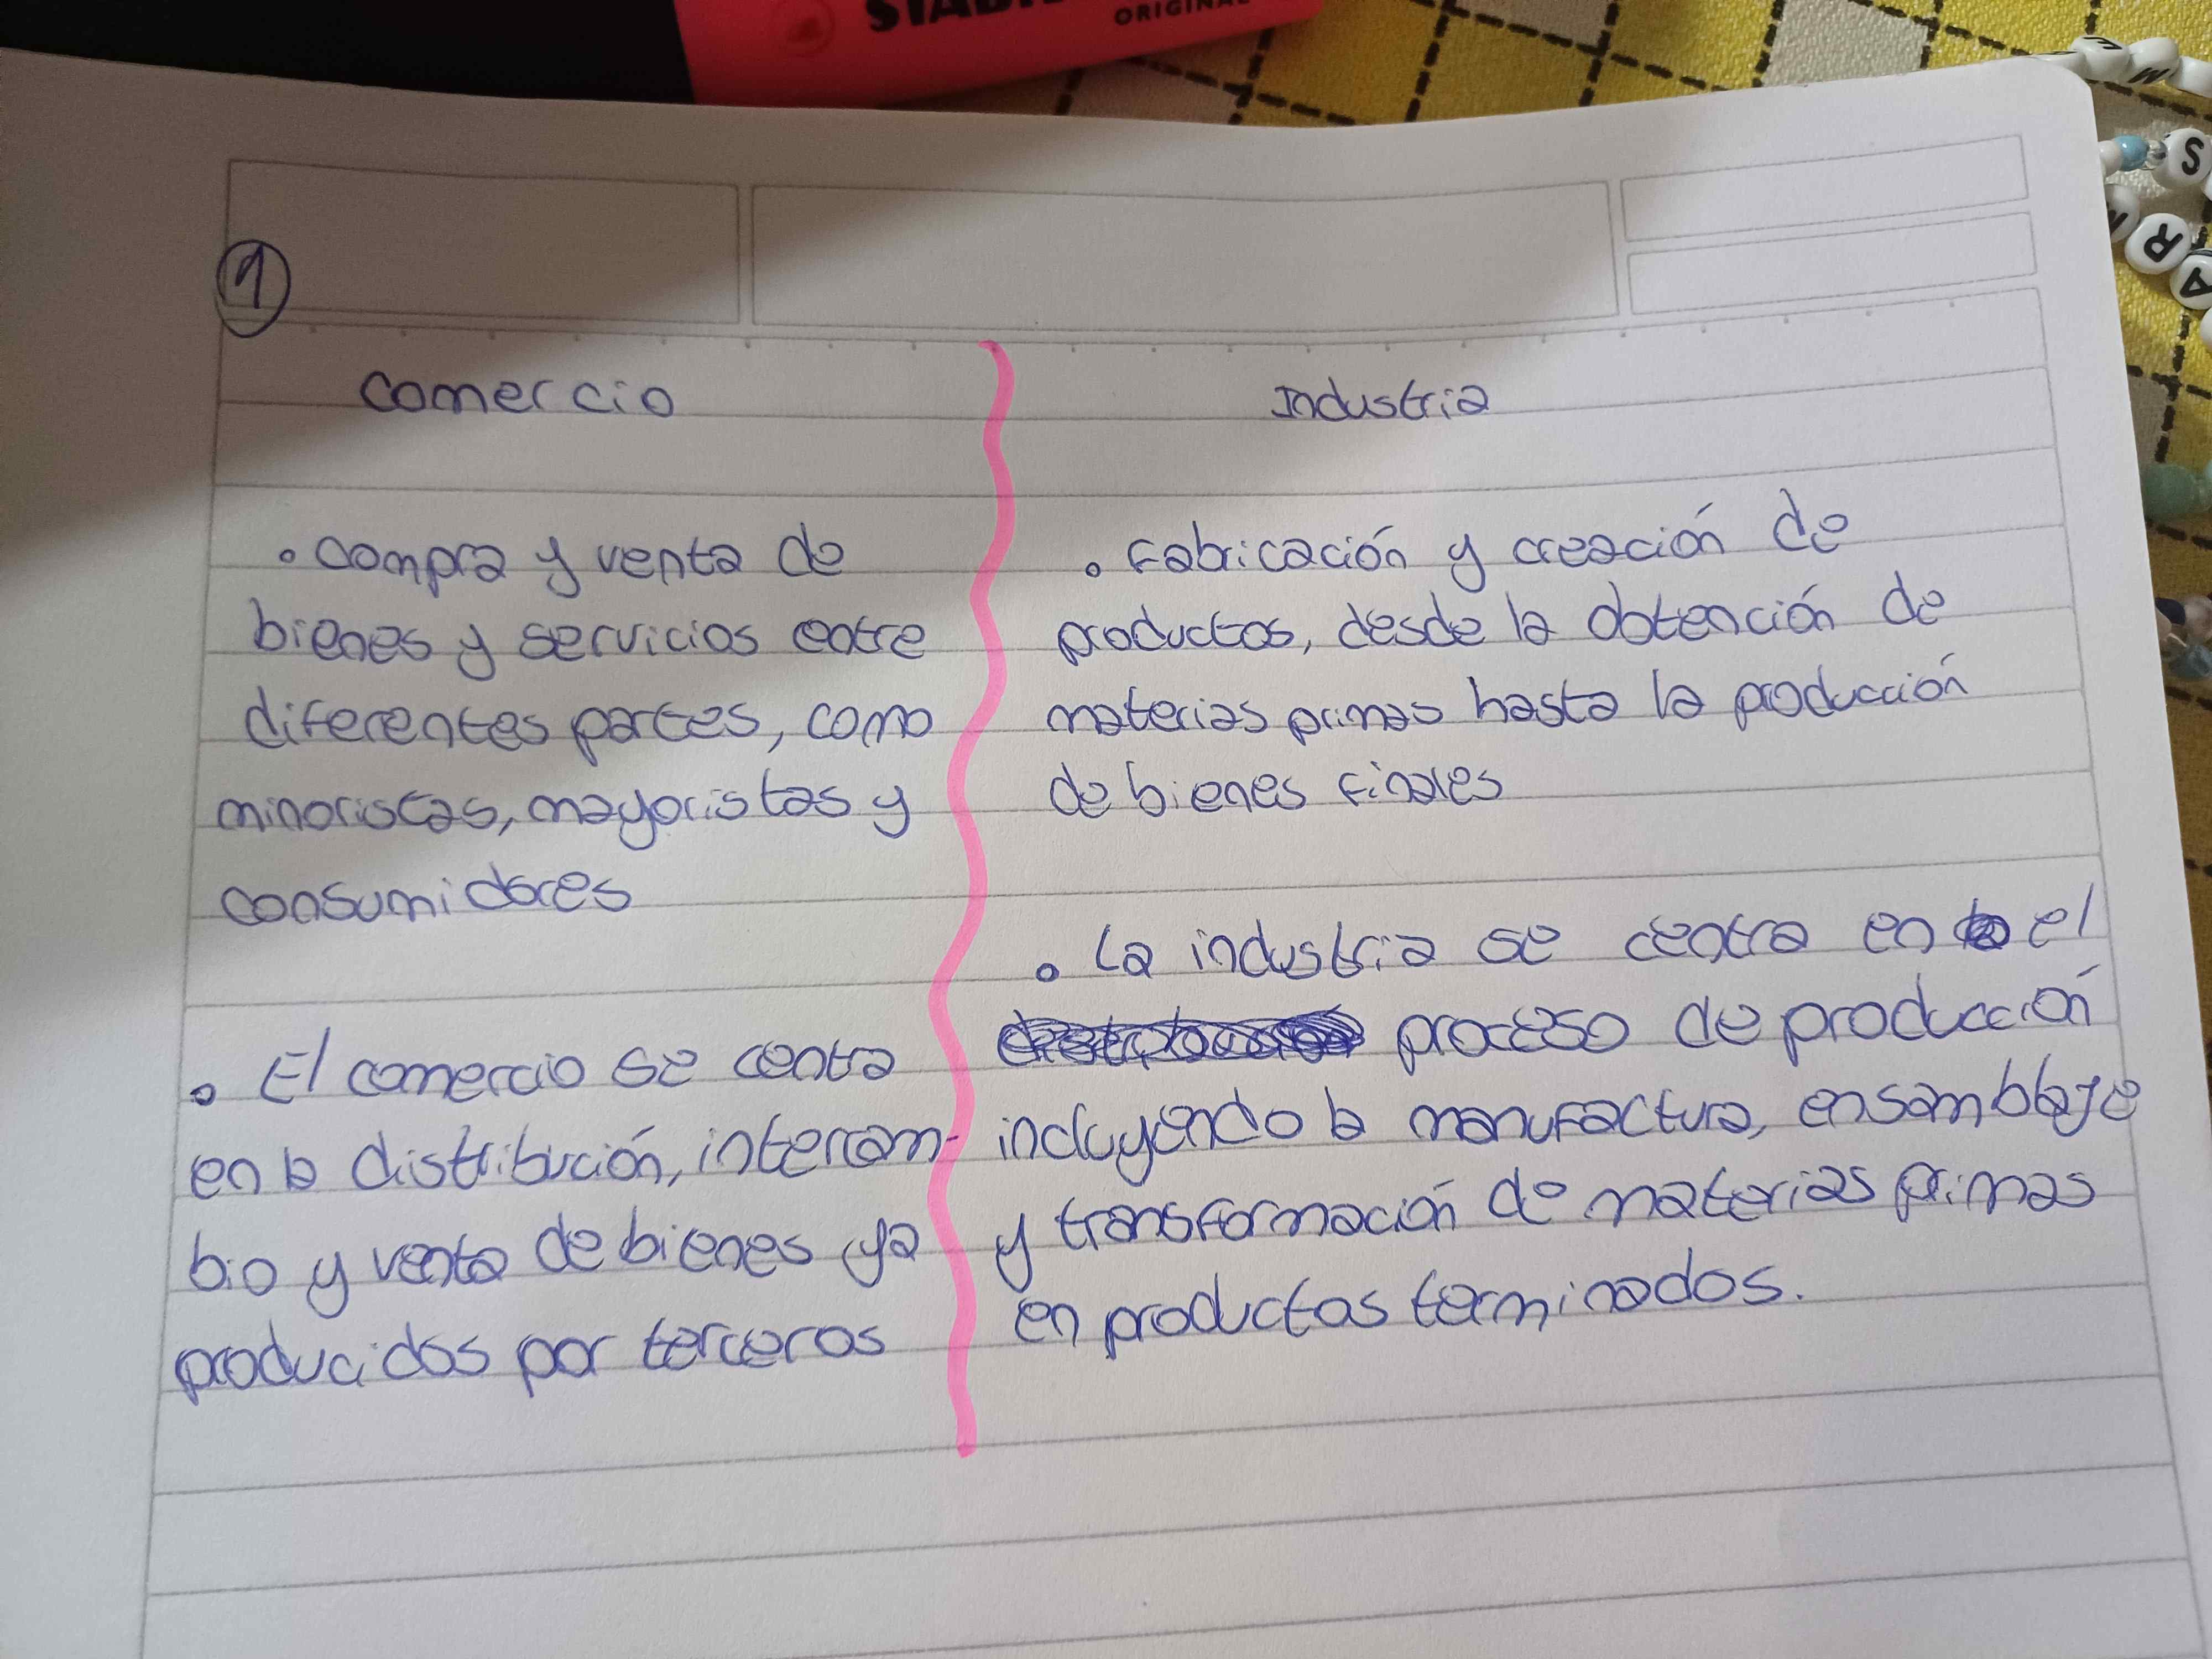 ORIGINAL
1
comercio
Industria
• compra y venta de
bienes y servicios entre
diferentes partes, como
minoristas, mayoristas y
consumidores
• El comercio se centra
en la distribución, intercam-
bio y venta de bienes ya
producidos por terceros
• Fabricación y creación de
productos, desde la obtención de
materias primas hasta la producción
de bienes finales
• La industria se centra en el
proceso de producción
incluyendo la manufactura, ensamblaje
y transformación de materias primas
en productos terminados.
M
S
R
A